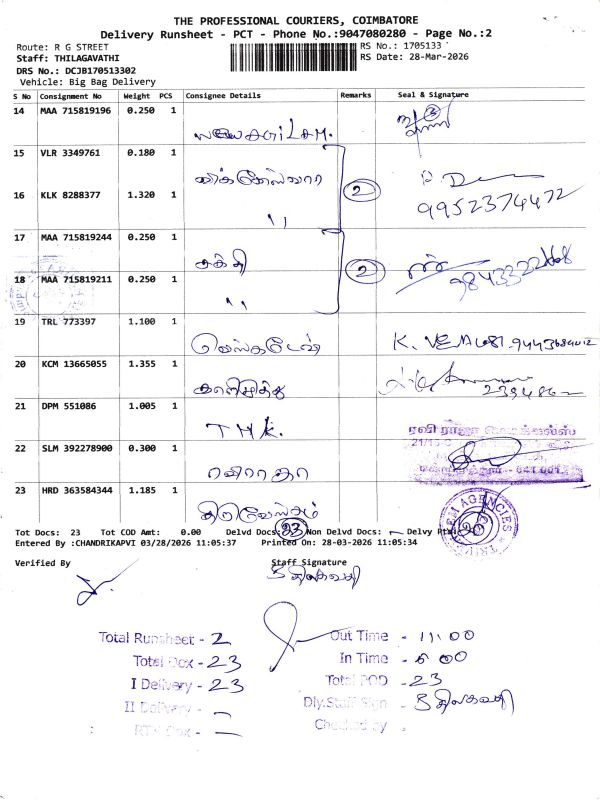 THE PROFESSIONAL COURIERS, COIMBATORE
Delivery Runsheet - PCT - Phone No.:9047080280 - Page No.:2
Route: R G STREET
RS No.: 1705133
Staff: THILAGAVATHI
RS Date: 28-Mar-2026
DRS No.: DCJB170513302
Vehicle: Big Bag Delivery
S No Consignment No Weight PCS Consignee Details Remarks Seal & Signature
14 MAA 715819196 0.250 1
15 VLR 3349761 0.180 1
16 KLK 8288377 1.320 1 " 2 9952374472
17 MAA 715819244 0.250 1 சக்தி
18 MAA 715819211 0.250 1 " 2
19 TRL 773397 1.100 1 வெங்கடேஷ்
20 KCM 13665055 1.355 1
21 DPM 551086 1.005 1 THK. ரவி ராஜா
22 SLM 392278900 0.300 1 ரவிராஜா
23 HRD 363584344 1.185 1 AGENCIES
Tot Docs: 23 Tot COD Amt: 0.00 Delvd Docs: 23 Non Delvd Docs: - Delvy
Entered By :CHANDRIKAPVI 03/28/2026 11:05:37 Printed On: 28-03-2026 11:05:34
Verified By Staff Signature
திலகவதி
Total Runsheet - 2 Out Time - 11:00
Total Dox - 23 In Time - 6:00
I Delivery - 23 Total POD - 23
II Delivery - — Dly.Staff Sign - திலகவதி
RTN Dox - — Checked by -